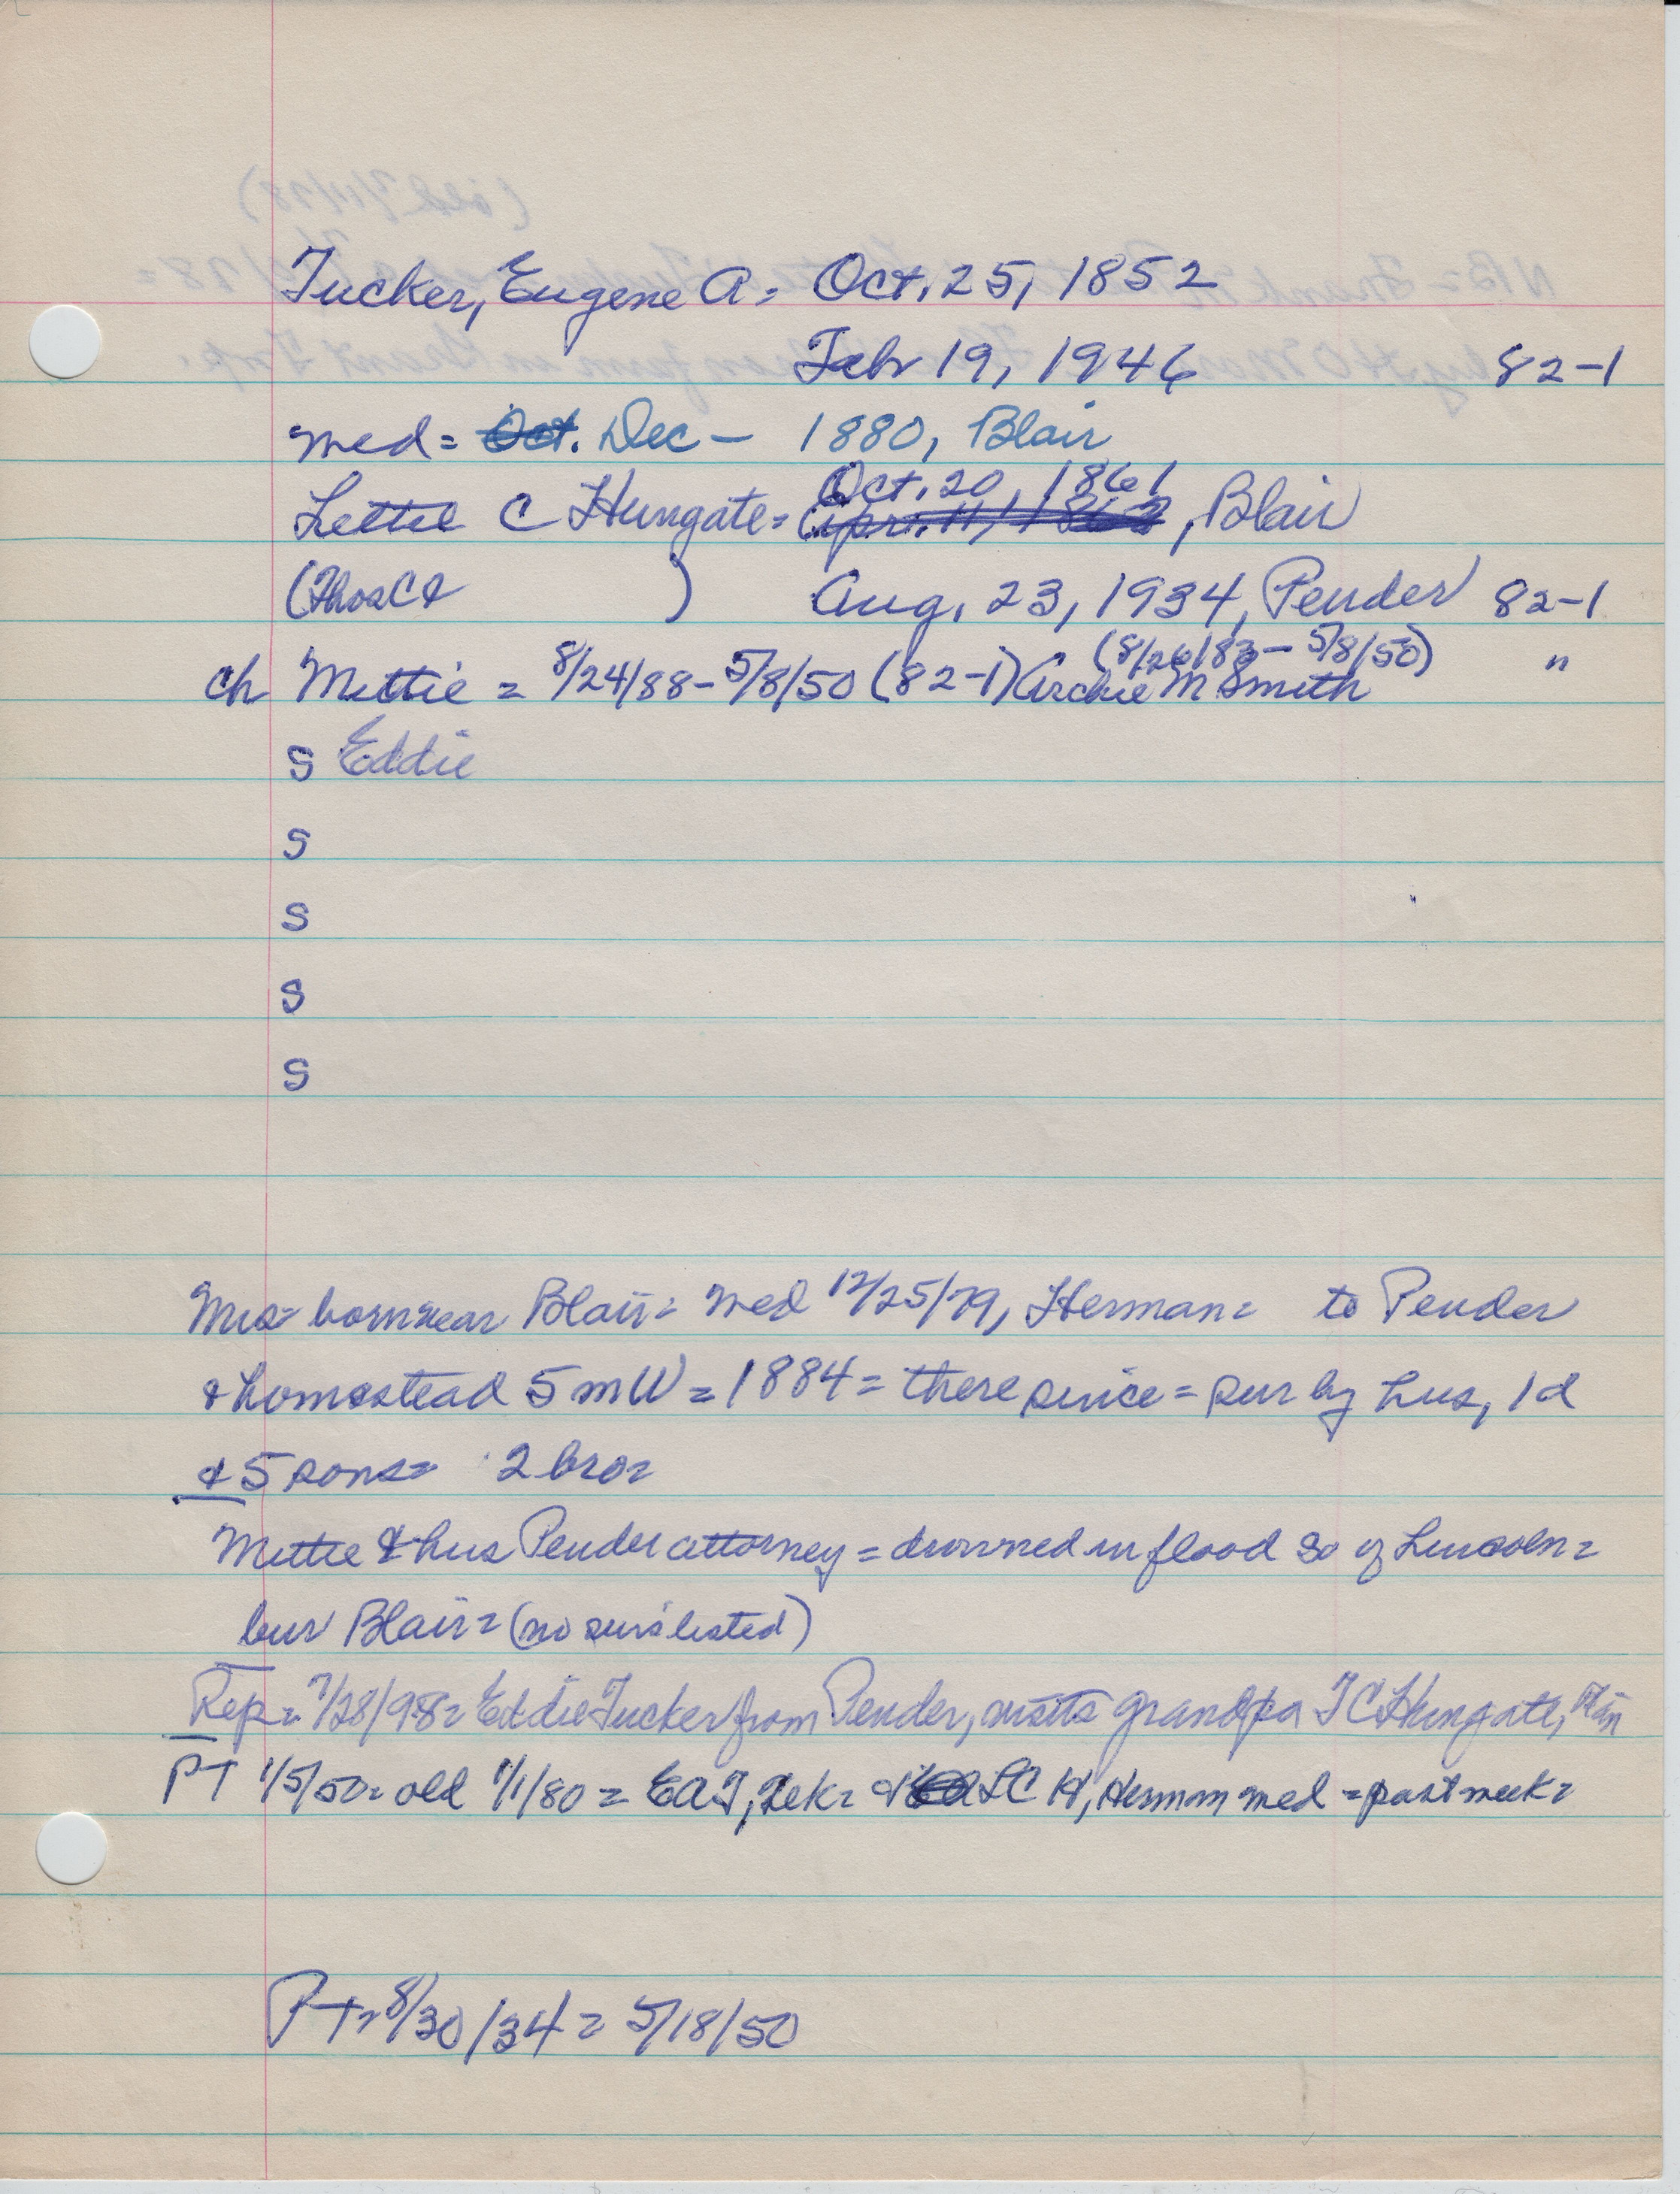 Tucker, Eugene A = Oct. 25, 1852
Febr 19, 1946 82-1
med = Oct. Dec - 1880, Blair
Oct. 20, 1861
Lettie C Hungate = , Blair
(Thos C & ) Aug, 23, 1934, Pender 82-1
(8/26/83 - 5/8/50)
ch Mettie = 8/24/88 - 5/8/50 (82-1) Archie M Smith "
S Eddie
S
S
S
S
Mrs = born near Blair = med 12/25/79, Herman = to Pender
& homestead 5 m W = 1884 = there since = sur by hus, 1 d
& 5 sons = 2 bro =
Mettie & hus Pender attorney = drowned in flood so of Lincoln =
bur Blair = (no surv listed)
Rep = 7/28/98 = Eddie Tucker from Pender, visits grandpa T C Hungate,
PT 1/5/50 = old 1/1/80 = E A T, Tek = & L C H, Herman med = past week =
PT = 8/30/34 = 5/18/50